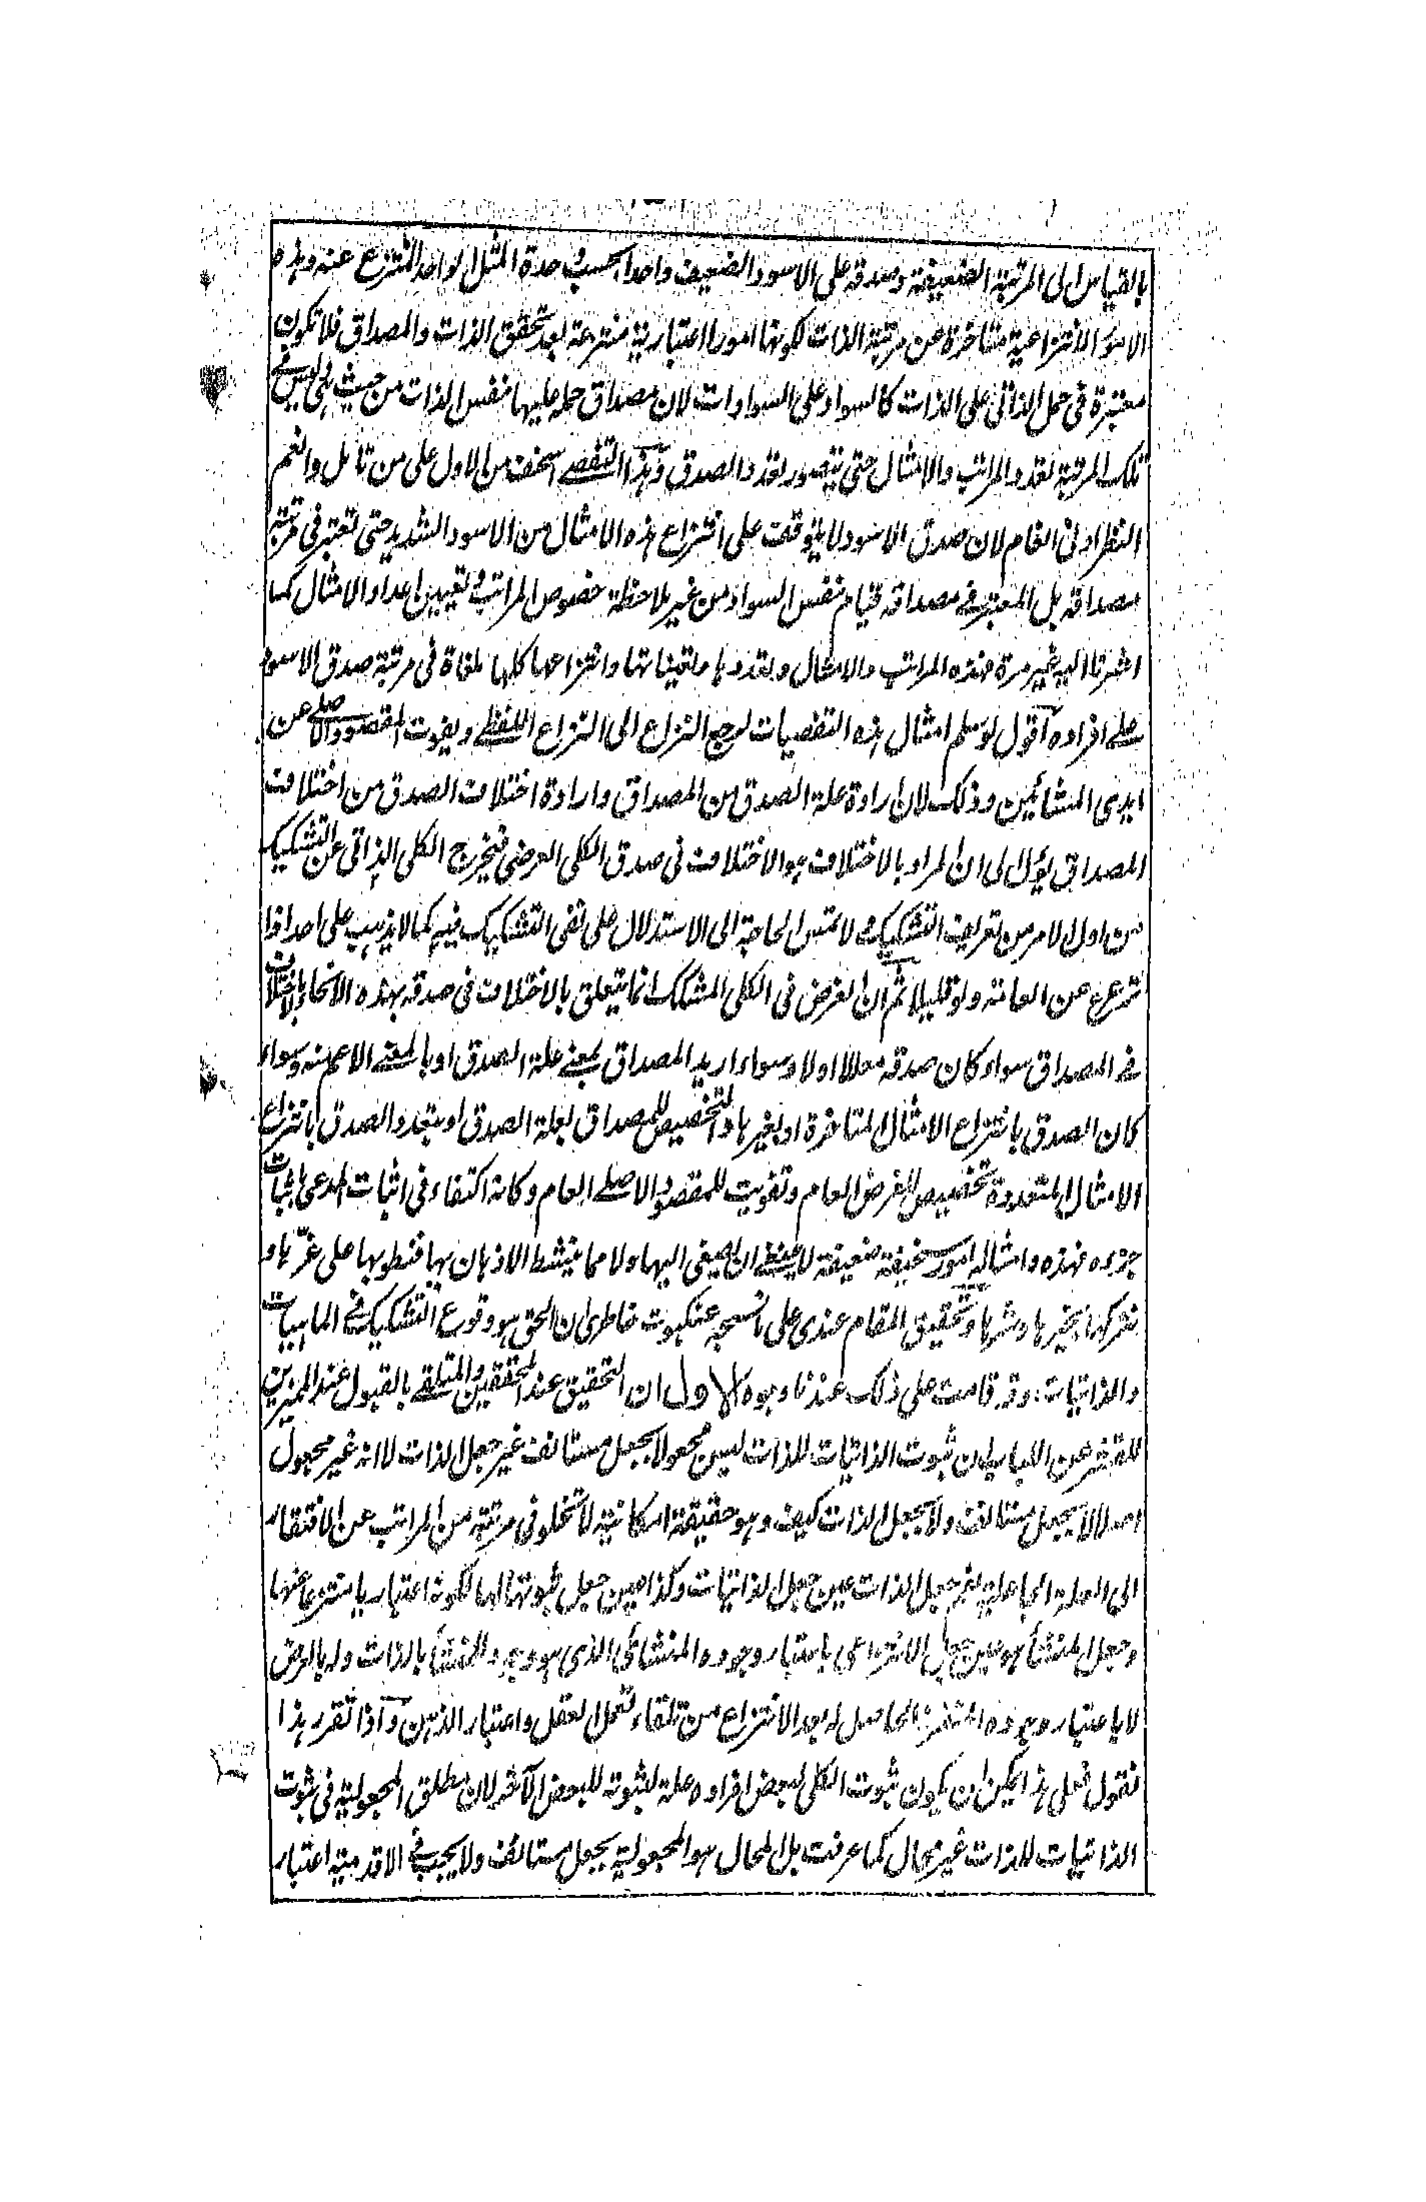 بالقياس الى المرتبة الضعيفة وصدقه على الاسود الضعيف واحدا بحسب وحدة المثل الواحد المنتزع عنه وهذه
الامور الانتزاعية متاخرة عن مرتبة الذات لكونها امورا اعتبارية منتزعة بعد تحقق الذات والمصداق فلا تكون
معتبرة فى حمل الذاتى على الذات كالسواد على السوادات لان مصداق حمله عليها نفس الذات من حيث هى ليس فى
تلك المرتبة تعدد المراتب والامثال حتى يتصور تعدد الصدق وهذا التفصى اسخف من الاول على من تامل وانعم
النظر ادنى انعام لان صدق الاسود لا يتوقف على انتزاع هذه الامثال من الاسود الشديد حتى تعتبر فى مرتبة
مصداقه بل المعتبر فى مصداقه قيام نفس السواد من غير ملاحظة خصوص المراتب فى تعيين اعداد الامثال كما
اشرنا اليه غير مرة فهذه المراتب والامثال وتعددها وتعيناتها وانتزاعها كلها ملغاة فى مرتبة صدق الاسود
على افراده اقول لو سلم امثال هذه التفصيات لرجع النزاع الى النزاع اللفظى ويفوت المقصود الاصلى عن
ايدى المشائيين وذلك لان ارادة علة الصدق من المصداق وارادة اختلاف الصدق من اختلاف
المصداق يؤل الى ان المراد بالاختلاف هو الاختلاف فى صدق الكلى العرضى فيخرج الكلى الذاتى عن التشكيك
من اول الامر من تعريف التشكيك فلا تمس الحاجة الى الاستدلال على نفى التشكيك فيه كما لا يذهب على احد اذا
ترعرع عن العامة ولو قليلا ثم ان الغرض فى الكلى المشكك انما يتعلق بالاختلاف فى صدقه بهذه الانحاء بالاختلاف
فى المصداق سواء كان صدقه معللا اولا وسواء اريد المصداق بمعنى علة الصدق او بالمعنى الاعم منه وسواء
كان الصدق بانتزاع الامثال المتاخرة او بغيرها والتخصيص للمصداق بعلة الصدق او بتعدد الصدق بانتزاع
الامثال المتعددة تخصيص للغرض العام وتفويت للمقصود الاصلى العام وكانه اكتفاء فى اثبات المدعى باثبات
جزءه فهذه وامثاله امور سخيفة ضعيفة لا ينبغى ان يصغى اليها ولا مما ينشط الاذهان بها فنطويها على غرها و
نتركها بخيرها وشرها وتحقيق المقام عندى على ما نسجه عنكبوت خاطرى ان الحق هو وقوع التشكيك فى الماهيات
والذاتيات وقد قامت على ذلك عندنا وجوه الاول ان التحقيق عند المحققين والمتلقى بالقبول عند المميزين
للقشر عن اللباب ان ثبوت الذاتيات للذات ليس مجعولا بجعل مستانف غير جعل الذات لا انه غير مجعول
اصلا لا بجعل مستانف ولا بجعل الذات كيف وهو حقيقة امكانية لا تخلو فى مرتبة من المراتب عن الافتقار
الى العلة الجاعلية فجعل الذات عين جعل الذاتيات وكذا عين جعل ثبوتها لها لكونه اعتباريا منتزعا عنها
وجعل المنشأ هو عين جعل الانتزاعى باعتبار وجوده المنشائى الذى هو وجود المنشأ بالذات وله بالعرض
لا باعتبار وجوده الحاصل له بعد الانتزاع من تلقاء تعمل العقل واعتبار الذهن واذا تقرر هذا
فنقول فعلى هذا يمكن ان يكون ثبوت الكلى لبعض افراده علة لثبوته للبعض الآخر لان مطلق المجعولية فى ثبوت
الذاتيات للذات غير محال كما عرفت بل المحال هو المجعولية بجعل مستانف ولا يجب فى الاقدمية اعتبار